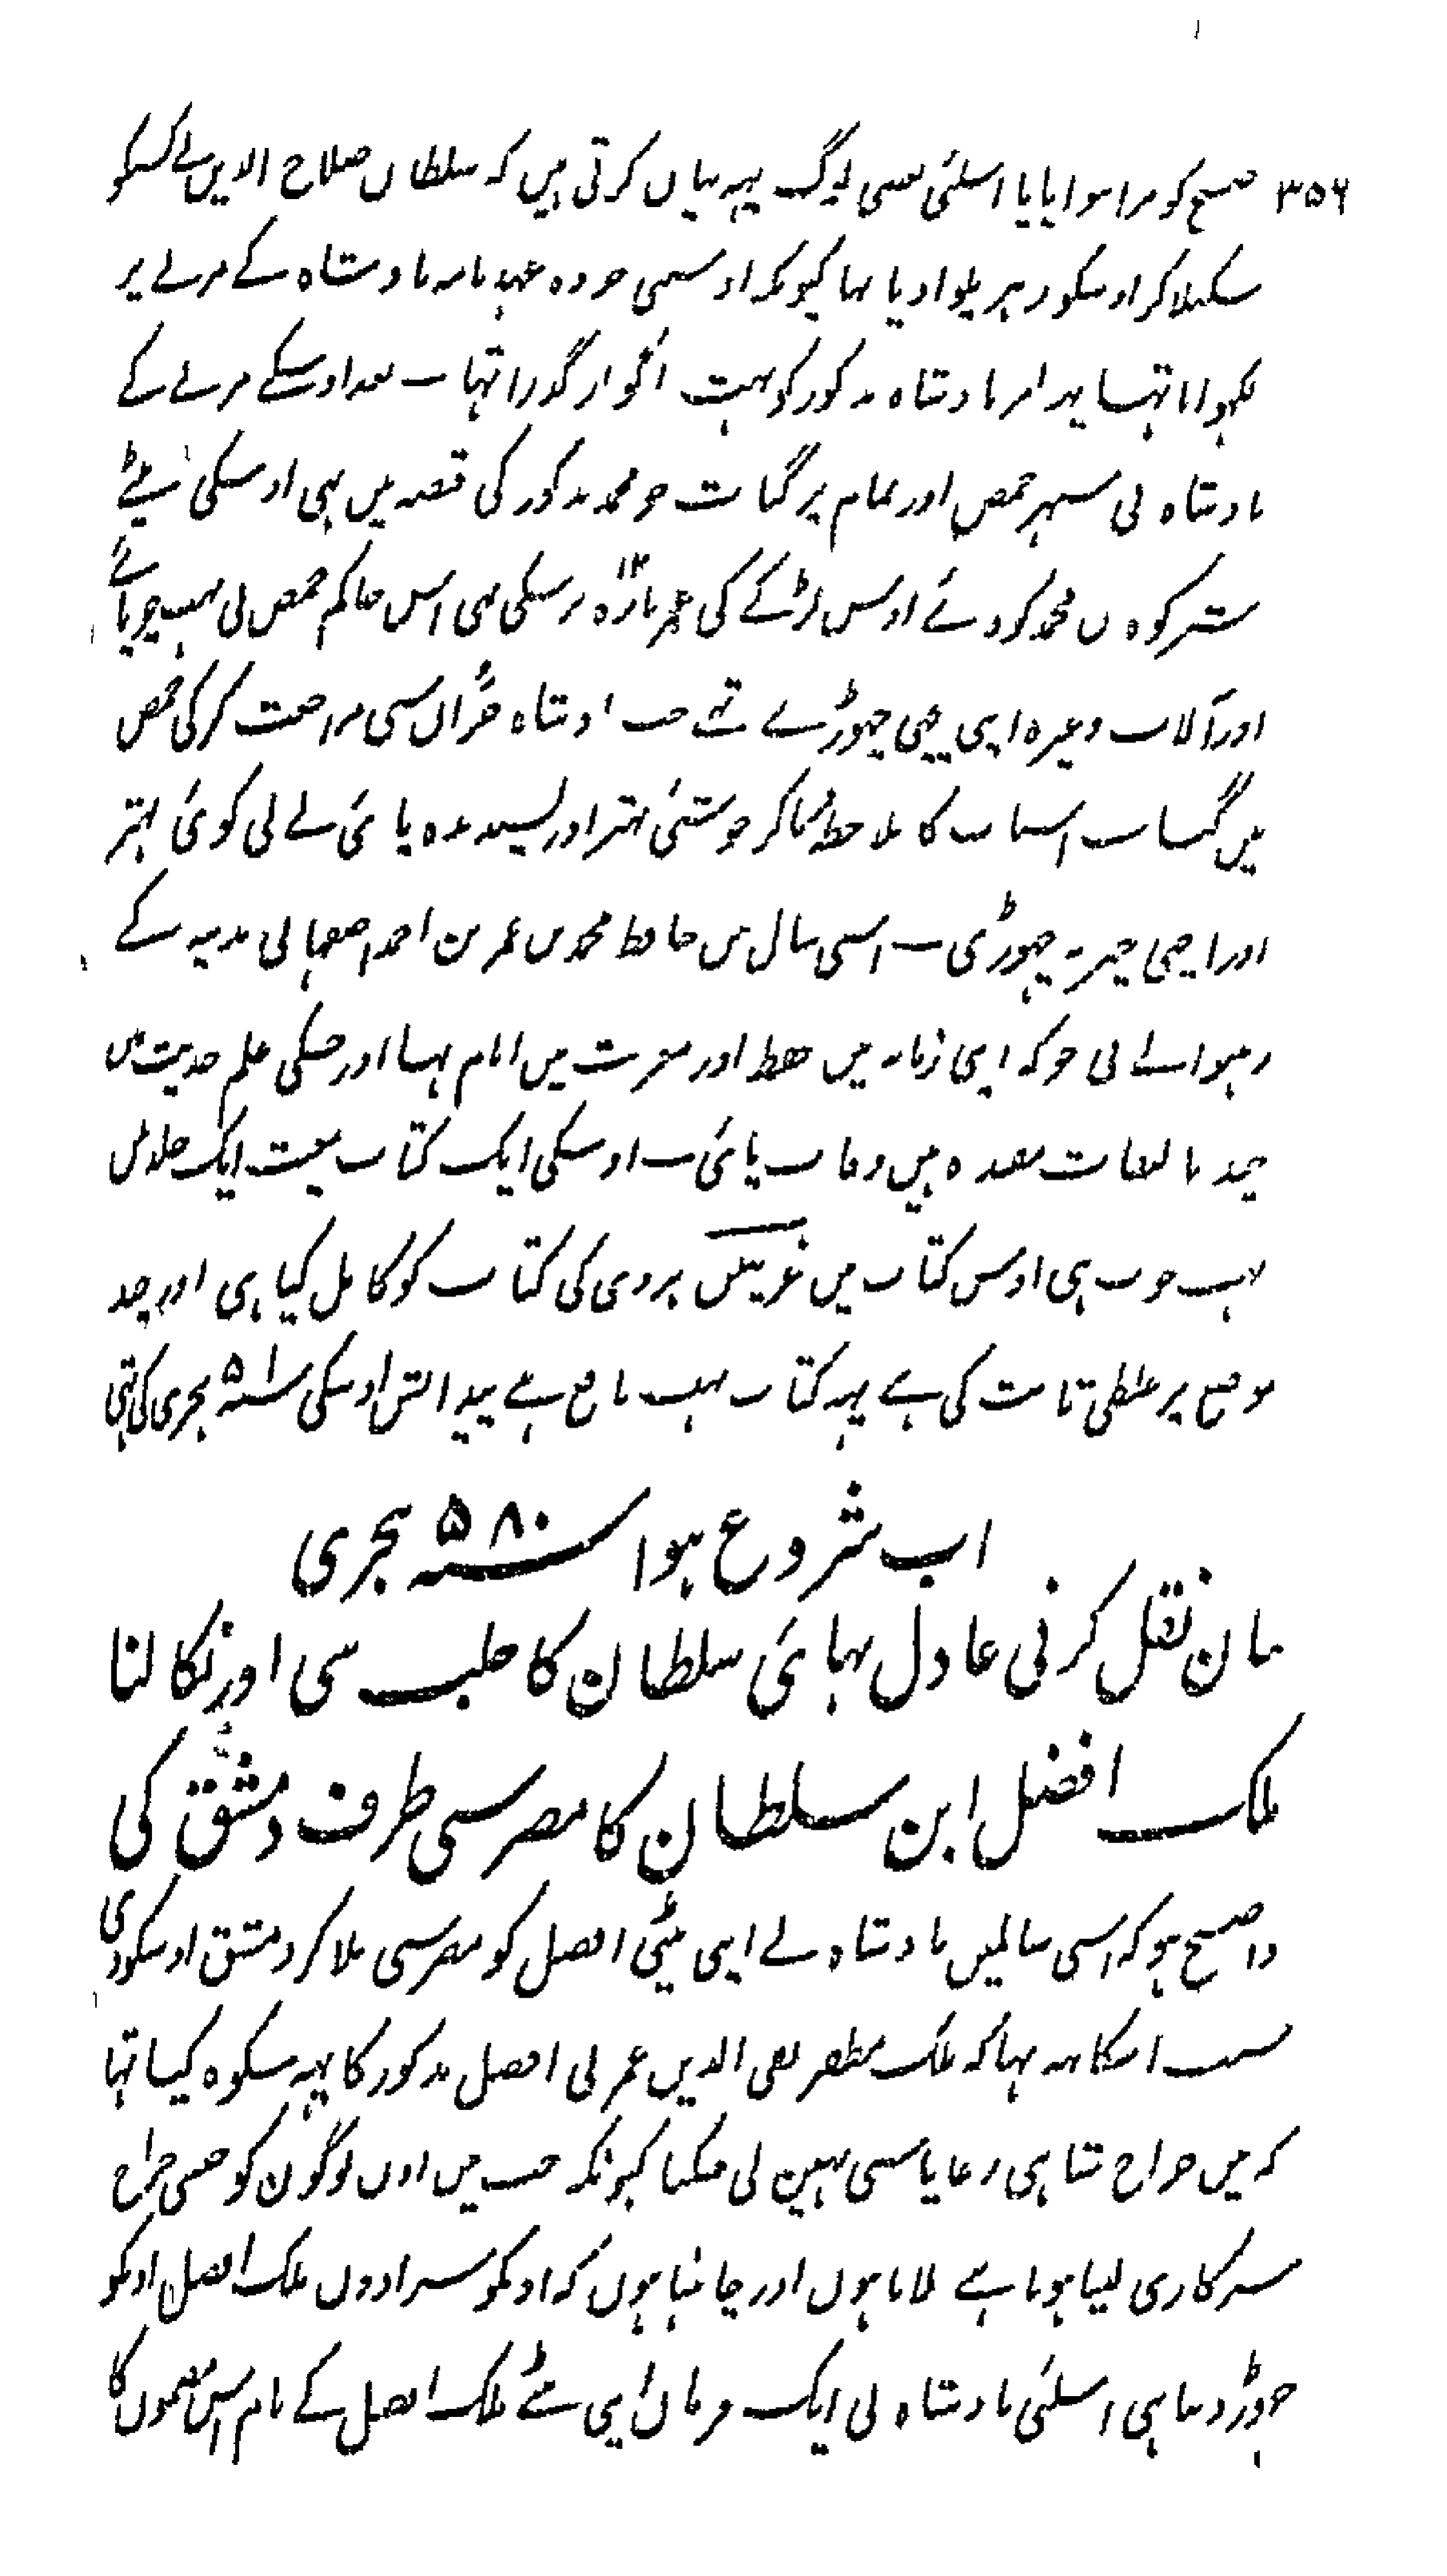 ۳۵۶ صبح کو مرا ہوا پایا اسلئی بعضی لوگ یہہ بیان کرتی ہیں کہ سلطان صلاح الدین نے کسیکو
سکہلا کر اوسکو زہر پلوا دیا تہا کیونکہ اوسی جو وہ عہدنامہ بادشاہ کے مرنے پر
لکہوایا تہا یہہ امر بادشاہ مذکور کو بہت ناگوار گذرا تہا ـ بعد اوسکے مرنے کے
بادشاہ نی شہر حمص اور تمام پرگنات جو محمد مذکور کی قبضہ میں تہی اوسکی بیٹے
شیرکوہ بن محمد کو دئے اوس لڑکے کی عمر بارہ ۱۲ برسکی تہی اس حاکم حمص نی بہت چوپائے
اور آلات وغیرہ اپنی پیچہی چہوڑے تہے جب بادشاہ حرّان سی مراجعت کر کی حمص
میں گیا تب اسباب کا ملاحظہ فرما کر جو شئی بہتر اور پسندیدہ پائی لے لی کوئی بہتر
اور اچہی چیز نہ چہوڑی ـ اسی سال میں حافظ محمد بن عمر بن احمد اصفہانی مدینہ کے
رہنوالے نی جو کہ اپنی زمانہ میں حفظ اور معرفت میں امام تہا اور جسکی علم حدیث میں
چند تالیفات مفیدہ ہیں وفات پائی ـ اوسکی ایک کتاب مغیث ایک جلد میں
بہت خوب ہی اوس کتاب میں غریبین ہروی کی کتاب کو کامل کیا ہی اور چند
موضع پر غلطی ثابت کی ہے یہہ کتاب بہت نافع ہے پیدائش اوسکی سنہ ۵۰۱ ہجری کی تہی
اب شروع ہوا سنہ ۵۸۰ ہجری
بیان نقل کرنی عادل بہائی سلطان کا حلب سی اور نکالنا
ملک افضل ابن سلطان کا مصر سی طرف دمشق کی
واضح ہو کہ اسی سالمیں بادشاہ نے اپنی بیٹی افضل کو مصر سی بلا کر دمشق اوسکو دی
سبب اسکا یہہ تہا کہ ملک مظفر تقی الدین عمر نی افضل مذکور کا یہہ شکوہ کیا تہا
کہ میں خراج شاہی رعایا سی نہین لی سکتا کیونکہ جب میں اون لوگون کو جنسی خراج
سرکاری لینا ہوتا ہے بلاتا ہوں اور چاہتا ہوں کہ اونکو سزا دوں ملک افضل اونکو
چہوڑ دیتا ہی اسلئی بادشاہ نی ایک فرمان اپنی بیٹے ملک افضل کے نام اس مضمون کا